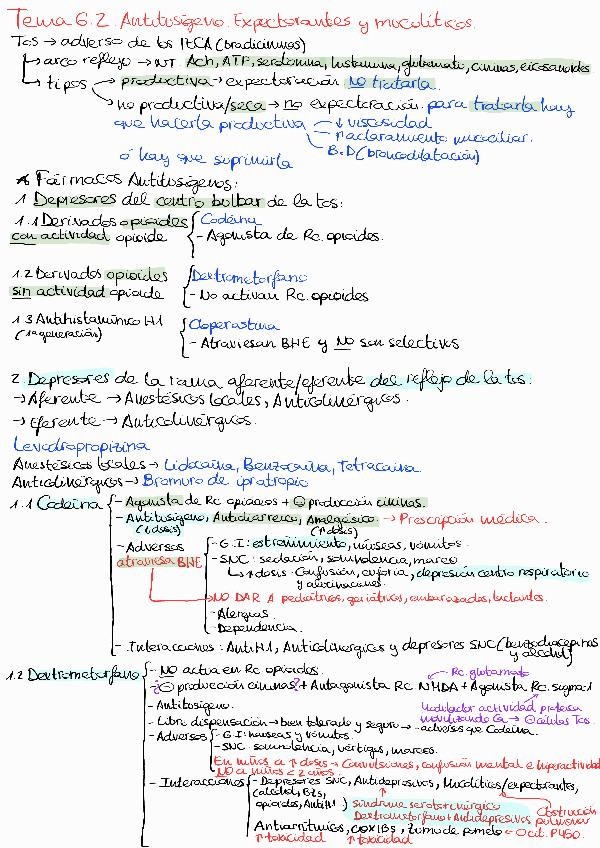 Tema 6.2 Antitusígeno. Expectorantes y mucolíticos.
Tos → adverso de los IECA (bradicininas)
↳ arco reflejo → NT Ach, ATP, serotonina, histamina, glutamato, cininas, eicosanoides
↳ tipos → productiva → expectoración NO tratarla.
→ no productiva/seca → no expectoración para tratarla hay
que hacerla productiva — ↓ viscosidad
↑ aclaramiento mucociliar.
B.D (broncodilatación)
ó hay que suprimirla
* Fármacos Antitusígenos:
1. Depresores del centro bulbar de la tos:
1.1 Derivados opioides con actividad opioide { Codeína
- Agonista de Rc. opioides.
1.2 Derivados opioides sin actividad opioide { Dextrometorfano
- No activan Rc. opioides
1.3 Antihistamínico H1 (1ª generación) { Cloperastina
- Atraviesan BHE y NO son selectivos
2. Depresores de la rama aferente/eferente del reflejo de la tos.
→ Aferente → Anestésicos locales, Anticolinérgicos.
→ Eferente → Anticolinérgicos.
Levodropropizina
Anestésicos locales → Lidocaína, Benzocaína, Tetracaína.
Anticolinérgicos → Bromuro de ipratropio
1.1 Codeína - Agonista de Rc opiaceos + ⊖ producción cininas.
- Antitusígeno, Antidiarreico, Analgésico. → Prescripción médica.
(↓dosis) (↑dosis)
- Adversos atraviesa BHE - G.I: estreñimiento, náuseas, vómitos.
- SNC: sedación, somnolencia, mareo
↳ ↑dosis: Confusión, euforia, depresión centro respiratorio
y alucinaciones.
→ NO DAR A pediátricos, geriátricos, embarazadas, lactantes.
- Alergias.
- Dependencia.
- Interacciones: AntiH1, Anticolinergicos y depresores SNC (benzodiacepinas y alcohol)
1.2 Dextrometorfano - NO activa en Rc. opioides. Rc. glutamato
- ¿⊖ producción cininas? + Antagonista Rc. NMDA + Agonista Rc. sigma-1
- Antitusígeno. Modulador actividad proteica
movilizando Ca → ⊖ células Tos.
- Libre dispensación → bien tolerado y seguro → - adversos que Codeína.
- Adversos - G.I: náuseas y vómitos.
- SNC: somnolencia, vértigos, mareos.
En niños a ↑ dosis → Convulsiones, confusión mental e hiperactividad
NO a niños < 2 años.
- Interacciones - Depresores SNC, Antidepresivos, Mucolíticos/expectorantes,
(alcohol, BZs, opioides, AntiH1) Síndrome serotoninérgico Obstrucción pulmonar
Dextrometorfano + Antidepresivos
Antiarrítmicos, COXIBs, Zumo de pomelo ← ⊖ cit. P450.
↑ toxicidad ↑ toxicidad